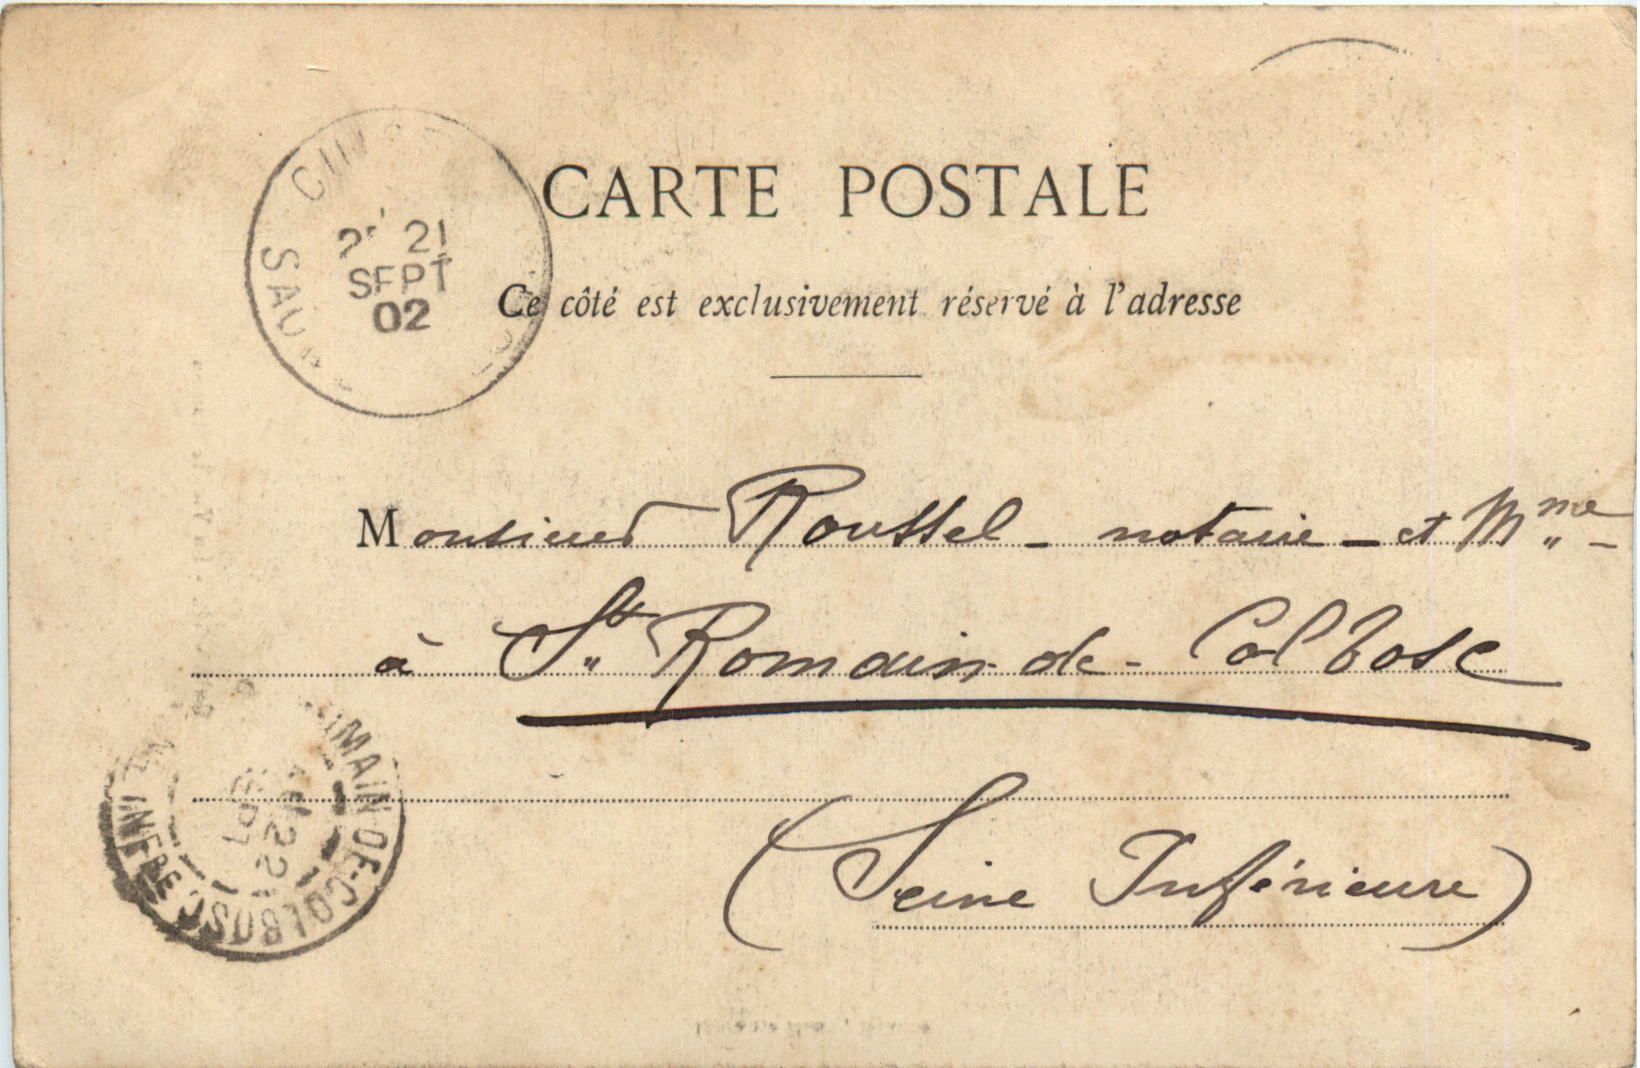 CARTE POSTALE
21
SEPT
02
Ce côté est exclusivement réservé à l'adresse
Monsieur Roussel - notaire - et Mme -
à St Romain-de-Colbosc
MAIN-DE-COLBOSC
22
(Seine Inférieure)